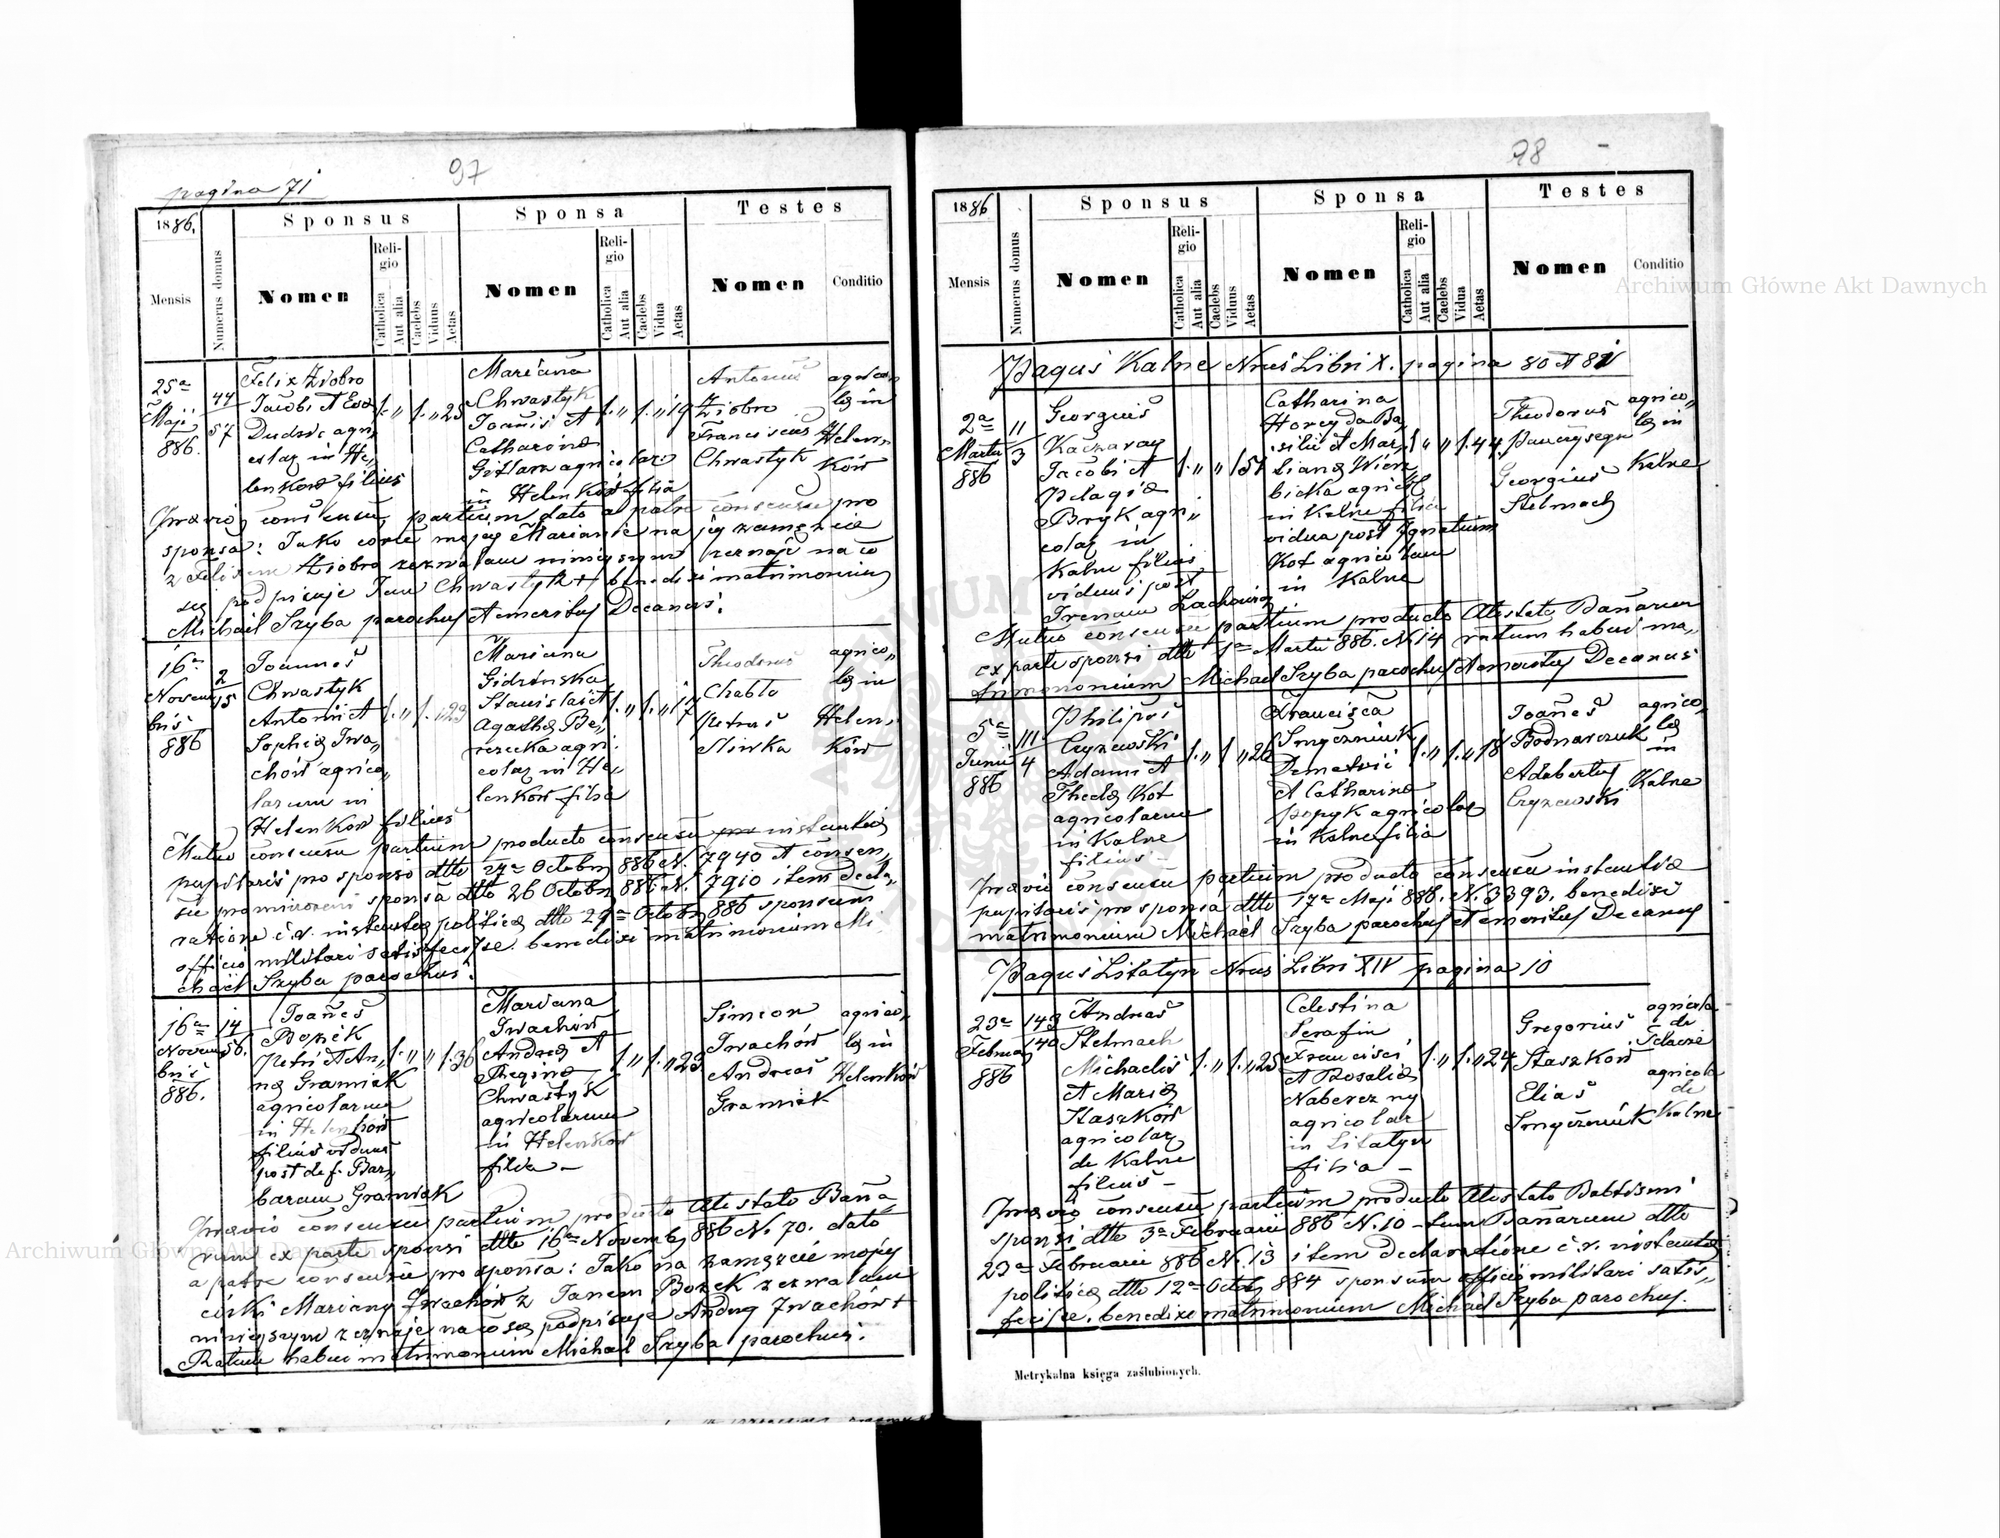 97
pagina 71
1886.
Sponsus
Sponsa
Testes
Mensis
Numerus domus
Nomen
Religio
Catholica
Aut alia
Caelebs
Viduus
Aetas
Nomen
Religio
Catholica
Aut alia
Caelebs
Vidua
Aetas
Nomen
Conditio
25a
Maji
886.
44
57
Felix Ziobro
Jacobi et Eva
Dudzic agri„
colar in He„
lenków filius
1. „ 1. „ 25
Mariana
Chwastyk
Joanis et
Catharina
agricolar
in Helenków filia
1. „ 1. „ 19
Antonius
Ziobro
Franciscus
Chwastyk
agrico„
læ in
Helen„
ków
Prævio consensu partium dato a patre consensu pro
sponsa: Jako córce mojej Mariannie na jej zamęzcie
z Felixem Ziobro zezwalam niniejszym zeznaję na co
się podpisuje Jan Chwastyk + benedixi matrimonium
Michael Szyba parochus Aemeritus Decanus.
16a
Novem
bris
886
2
15
Joannes
Chwastyk
Antoni et
Sophia Iwa„
chów agrico„
larum in
Helenkow filius
1. „ 1. „ 23
Mariana
Gidzińska
Stanislai et
Agatha Be„
rezecka agri:
colar in He„
lenków filia
1. „ 1. „ 17
Theodorus
Chabło
Petrus
Sliwka
agrico„
læ in
Helen„
ków
Mutuo consensu partium producto consensu instantiæ
pupilaris pro sponso dtto 27a Octobr 886 N. 7940 et consen„
su pro minoreni sponsa dtto 26 Octobr 886 N. 7910 item decla„
ratione c. r. instantiæ politicæ dtto 29a Octobr 886 sponsum
officio militari satisfecisse. benedixi matrimonium Mi„
chael Szyba parochus.
16a
Novem
bris
886.
14
56.
Joanes
Bozek
Petri et An„
na Gramiak
agricolarum
in Helenków
filius viduus
post def. Bar„
baram Gramiak
1. „ „ 1. 36
Mariana
Iwachów
Andrea et
Regina
Chwastyk
agricolarum
in Helenków
filia –
1. „ 1. „ 23
Simeon
Iwachów
Andreas
Gramiak
agrico„
læ in
Helenków
Prævio consensu partium producto Atestato Bana„
rum ex parte sponsi dtto 16a Novemb 886 N. 70. dato
a patre consensu pro sponsa: Jako na zamęzcie mojej
córki Marianny Iwachów z Janem Bozek zezwalam
niniejszym zeznaje na co się podpisuje Andruj Iwachów +
Ratum habui matrimonium Michael Szyba parochus.
98
1886
Sponsus
Sponsa
Testes
Mensis
Numerus domus
Nomen
Religio
Catholica
Aut alia
Caelebs
Viduus
Aetas
Nomen
Religio
Catholica
Aut alia
Caelebs
Vidua
Aetas
Nomen
Conditio
Pagus Kalne Nrus Libri X. pagina 80 et 81
2a
Martii
886
11
3
Georgius
Kaczaray
Jacobi et
Pelagia
Bryk agri„
colar in
Kalne filius
viduus post
Irenam Lachowicz
1. „ „ 1 51
Catharina
Horcyda Ba„
silii et Mar„
liana Wierz
bicka agricol
in Kalne filia
vidua post Ignatium
Kot agricolam
in Kalne
1 „ „ 1. 44
Theodorus
Georgius
Stelmach
agrico„
læ in
Kalne
Mutuo consensu partium producto Atestato Banarum
ex parte sponsi dtto 1a Martii 886. N. 14 ratum habui ma„
trimonium Michael Szyba parochus Aemeritus Decanus
5a
Junii
886
111
4
Philipus
Czyzewski
Adami et
Thecla Kot
agricolarum
in Kalne
filius –
1. „ 1 „ 26
Francisca
Smyczniuk
Demetrii
et Catharina
Popyk agricolar
in Kalne filia
1. „ 1. „ 18
Joanes
Bodnarczuk
Adalbertus
Czyzewski
agrico„
læ
in
Kalne
Prævio consensu partium producto consensu instantiæ
pupilaris pro sponsa dtto 17a Maji 886. N. 3393. benedixi
matrimonium Michael Szyba parochus et emeritus Decanus
Pagus Litatyn Nrus Libri XIV pagina 10
23a
Februar
886
143
140
Andreas
Stelmach
Michaelis
et Maria
Staszków
agricolar
de Kalne
filius –
1. „ 1. „ 25
Celestina
Serafin
Francisci
et Rosalia
Naberezny
agricolar
in Litatyn
filia –
1. „ 1. „ 24
Gregorius
Staszków
Elias
Smyczniuk
agricola
de
agricola
de
Kalne
Prævio consensu partium producto Atestato Babtismi
sponsi dtto 3a Februarii 886 N. 10 – tum Banarum dtto
23a Februarii 886 N. 13 item declaratione c. r. instantiæ
politicæ dtto 12a Octbr 884 sponsum officio militari satis„
fecisse. benedixi matrimonium Michael Szyba parochus.
Metrykalna księga zaślubionych.
Archiwum Główne Akt Dawnych
Archiwum Główne Akt Dawnych